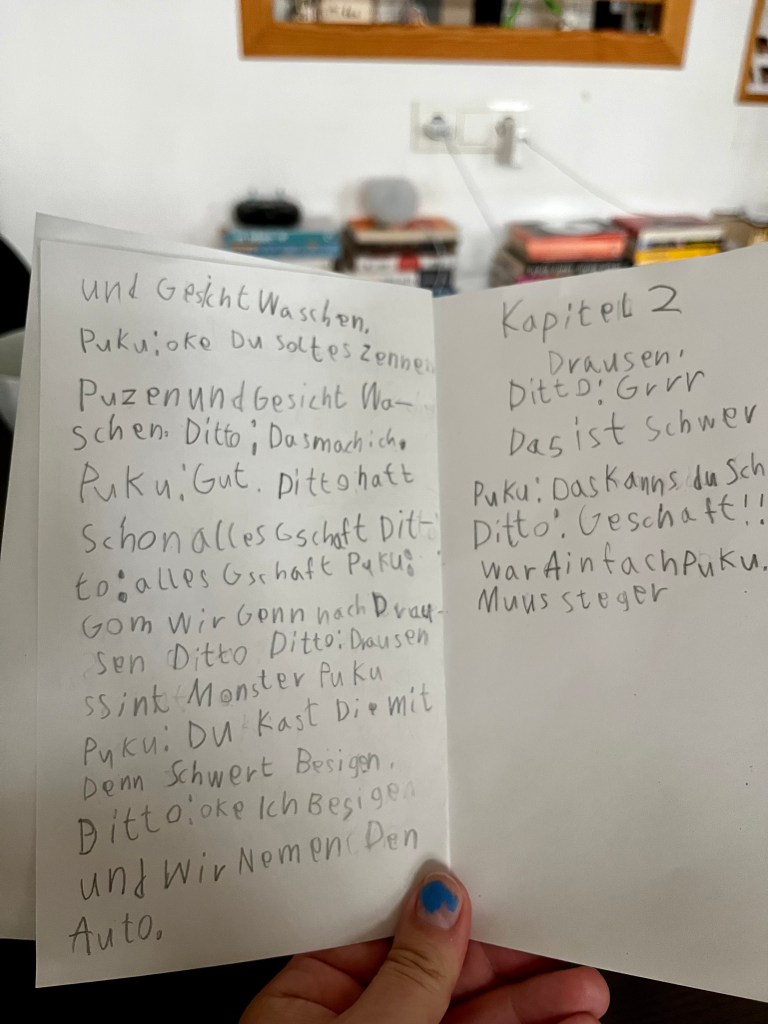 und Gesicht Waschen.
Puku: oke Du soltes Zennen
Puzen und Gesicht Wa-
schen. Ditto: Das mach ich.
Puku: Gut. Ditto haft
schon alles Gschaft Dit-
to: alles Gschaft Puku:
Gom wir Genn nach Drau-
sen Ditto Ditto: Drausen
ssint Monster Puku
Puku: Du Kast Die mit
Denn Schwert Besigen.
Ditto: oke Ich Besigen
und Wir Nemen Den
Auto.
Kapitel 2
Drausen.
Ditto: Grrr
Das ist schwer
Puku: Das Kanns du Sch
Ditto: Geschaft!!
war Ainfach Puku.
Muus steger